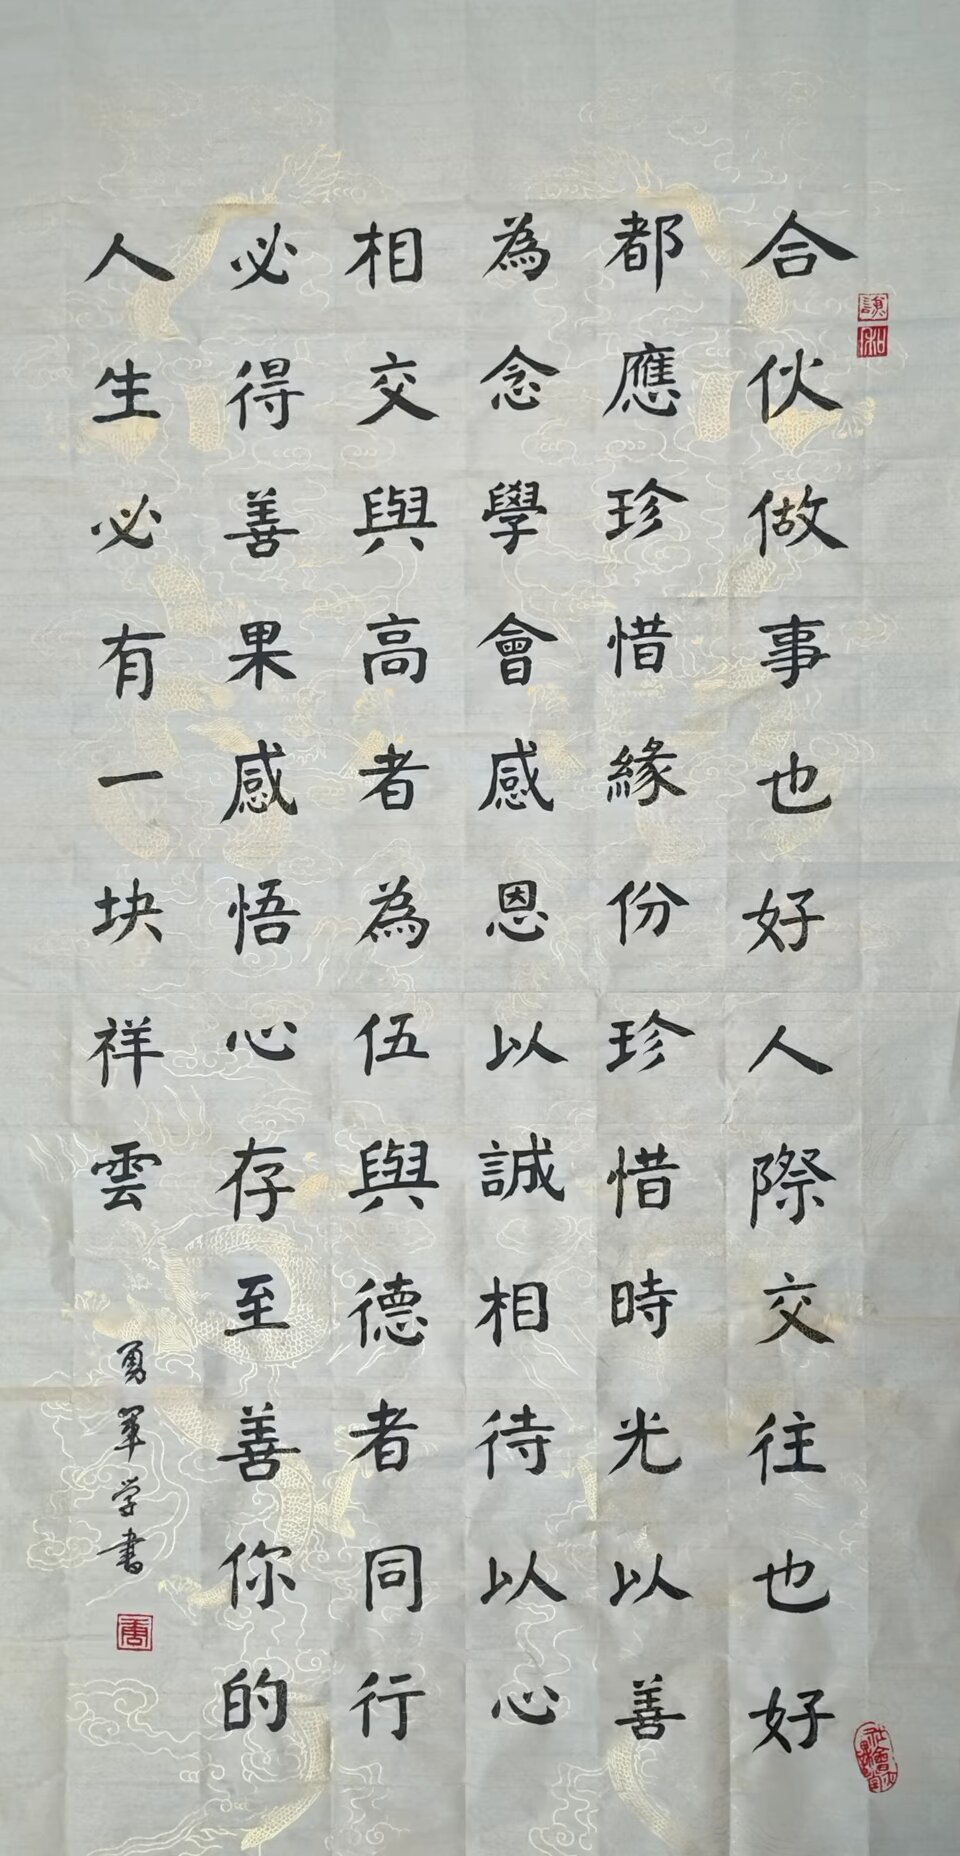 合伙做事也好人際交往也好
都應珍惜緣份珍惜時光以善
為念學會感恩以誠相待以心
相交與高者為伍與德者同行
必得善果感悟心存至善你的
人生必有一块祥雲
勇軍学書